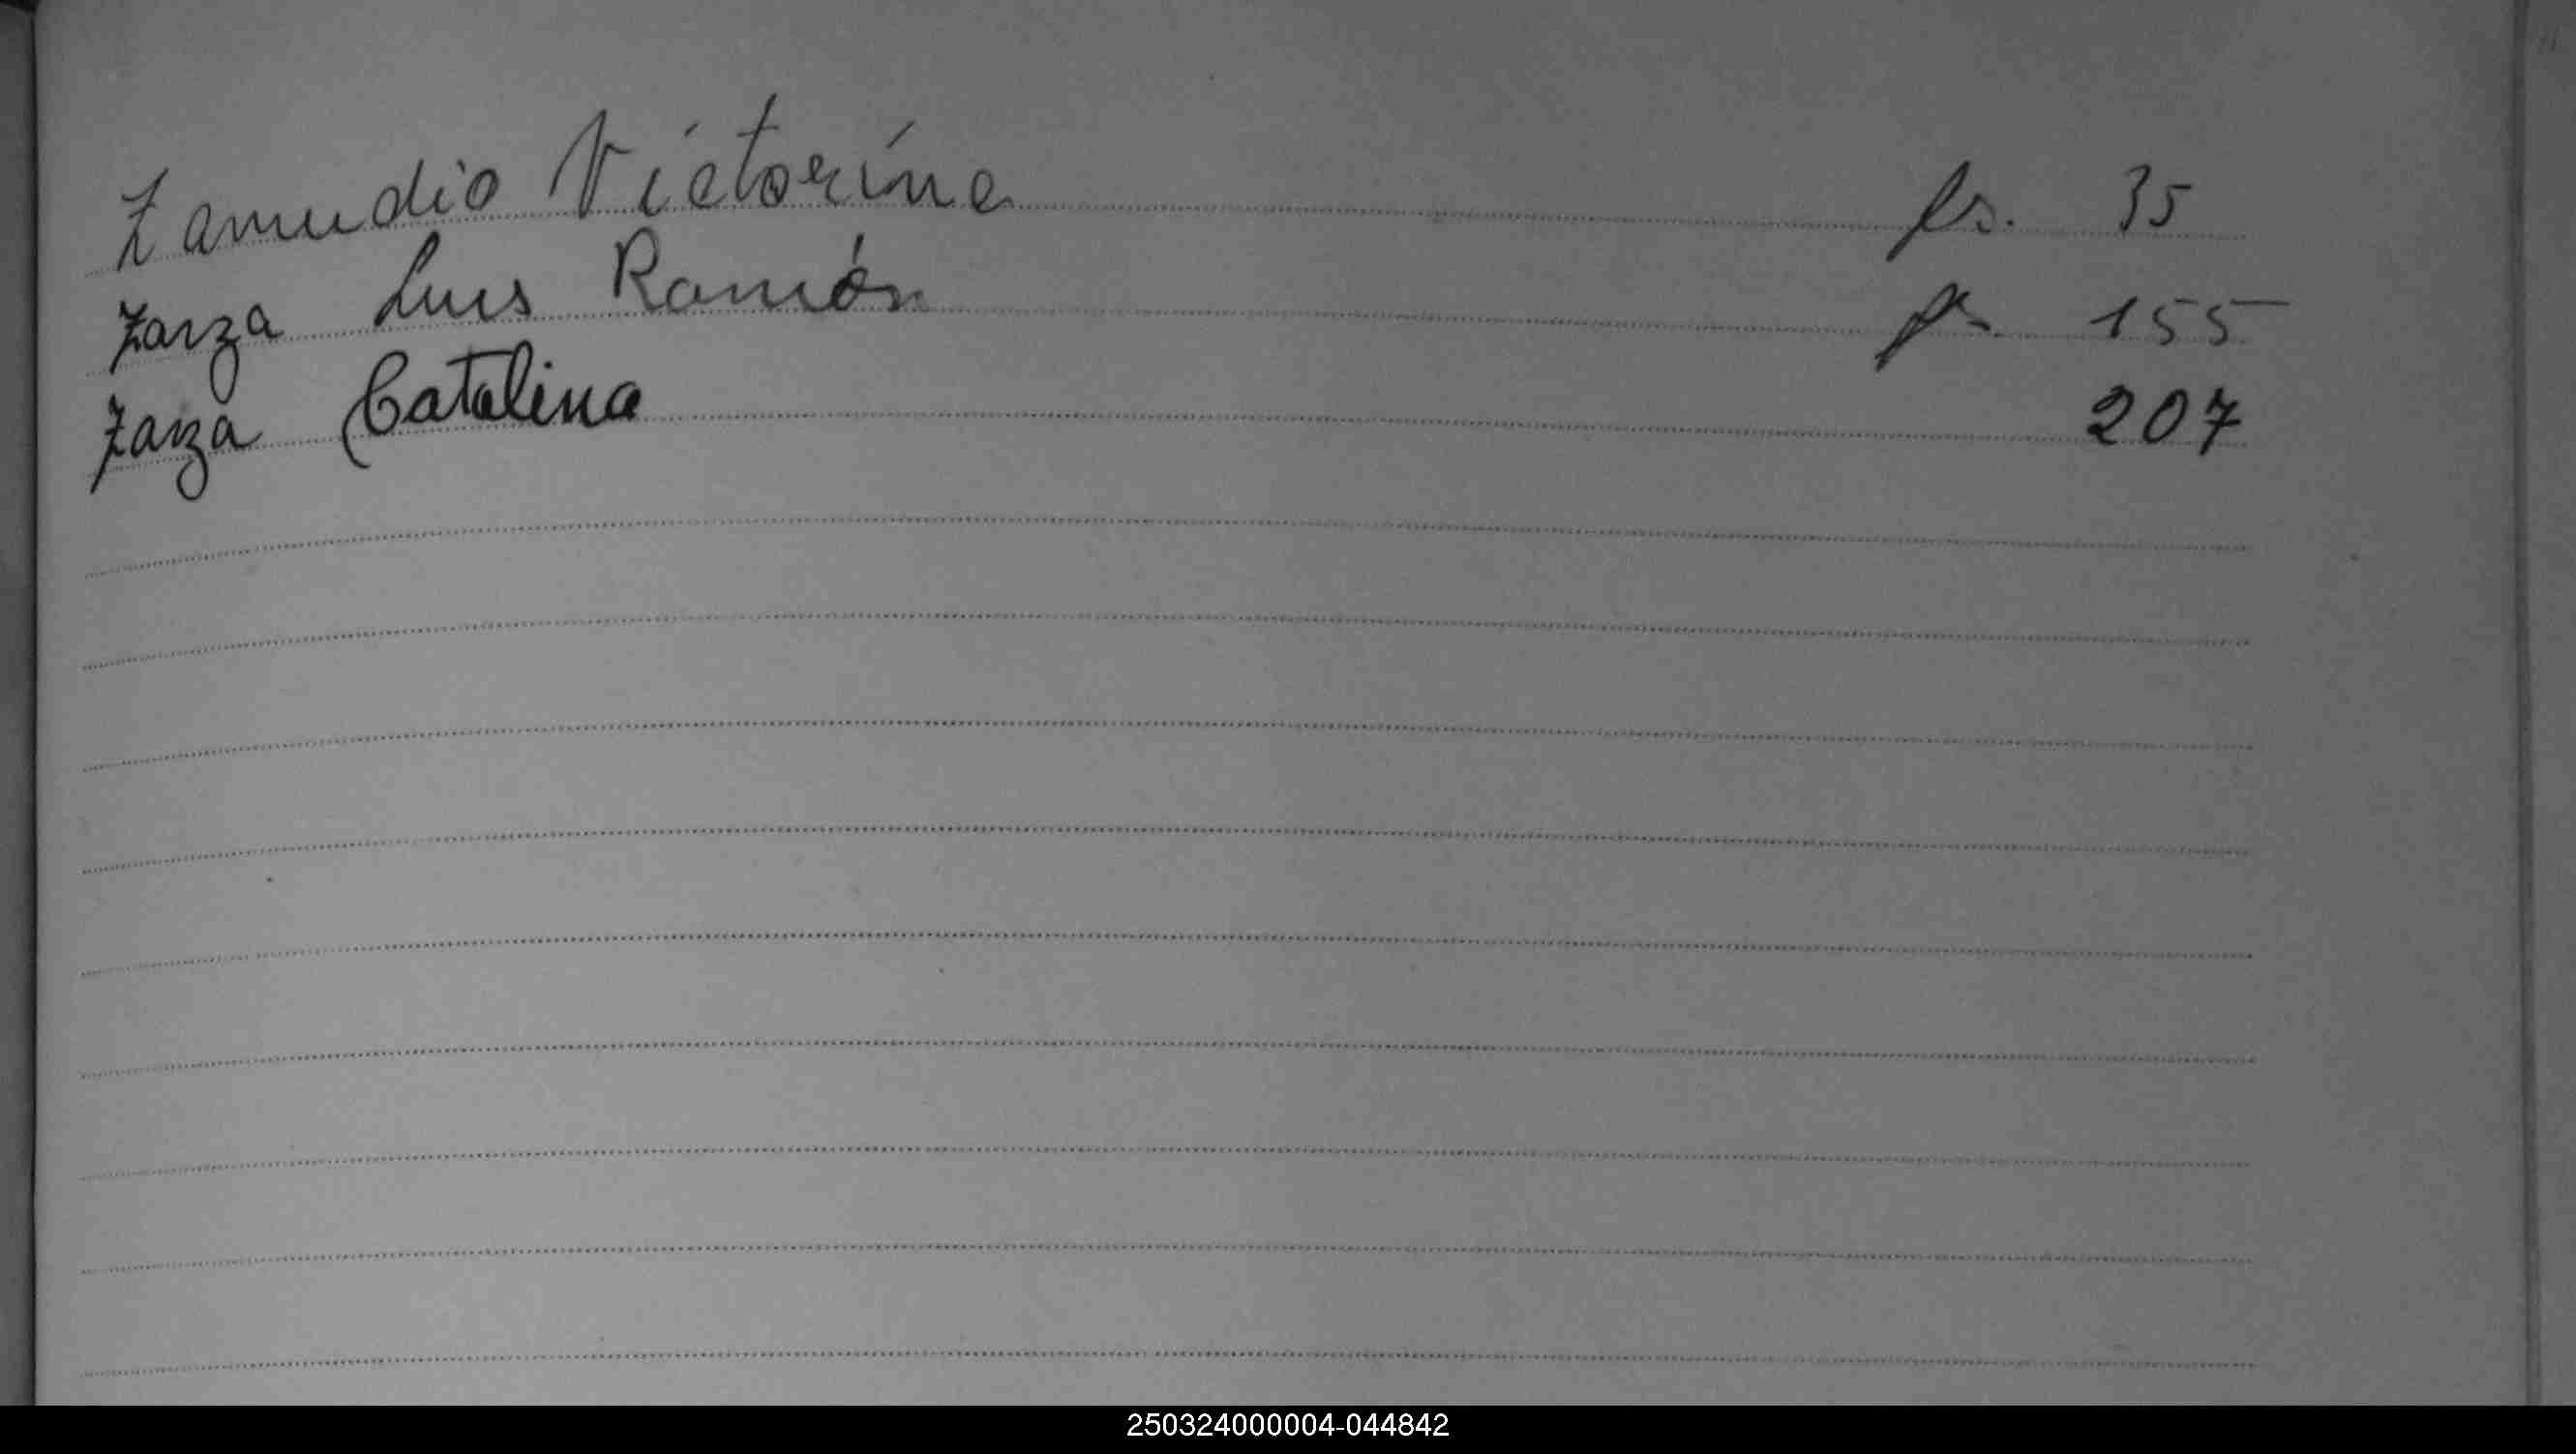 Zamudio Victorina fs. 35
Zarza Luis Ramón fs 155
Zarza Catalina 207
250324000004-044842